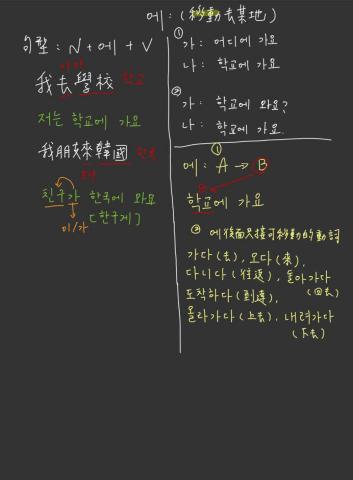 에 : (移動去某地)
句型 : N + 에 + V
我去學校 학교
가다
저는 학교에 가요
我朋友來韓國 한국
오다
친구가 한국에 와요
[한구게]
이/가
①
가 : 어디에 가요
나 : 학교에 가요
②
가 : 학교에 와요?
나 : 학교에 가요.
①
에 : A → B
학교에 가요
② 에後面只接可移動的動詞
가다(去), 오다(來),
다니다(往返), 돌아가다
(回去)
도착하다(到達),
올라가다(上去), 내려가다
(下去)